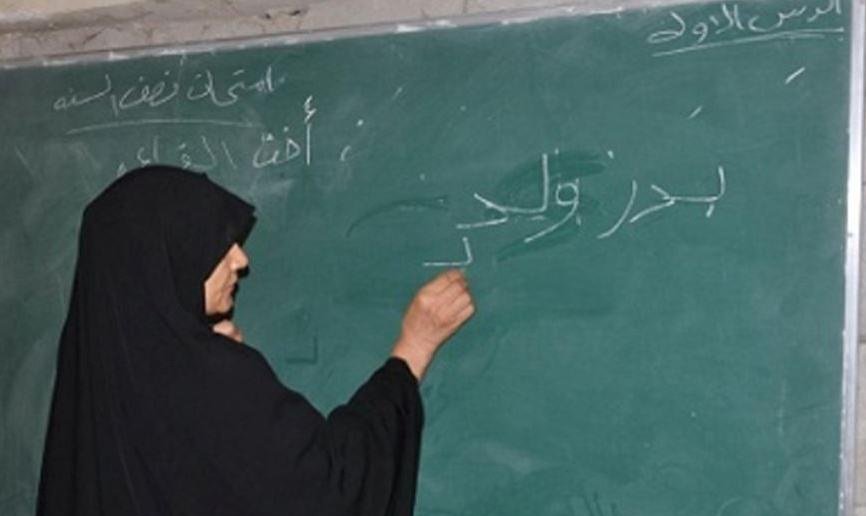 الدرس الاول
امتحان نصف السنه
أخت القراءه
بدر وليد